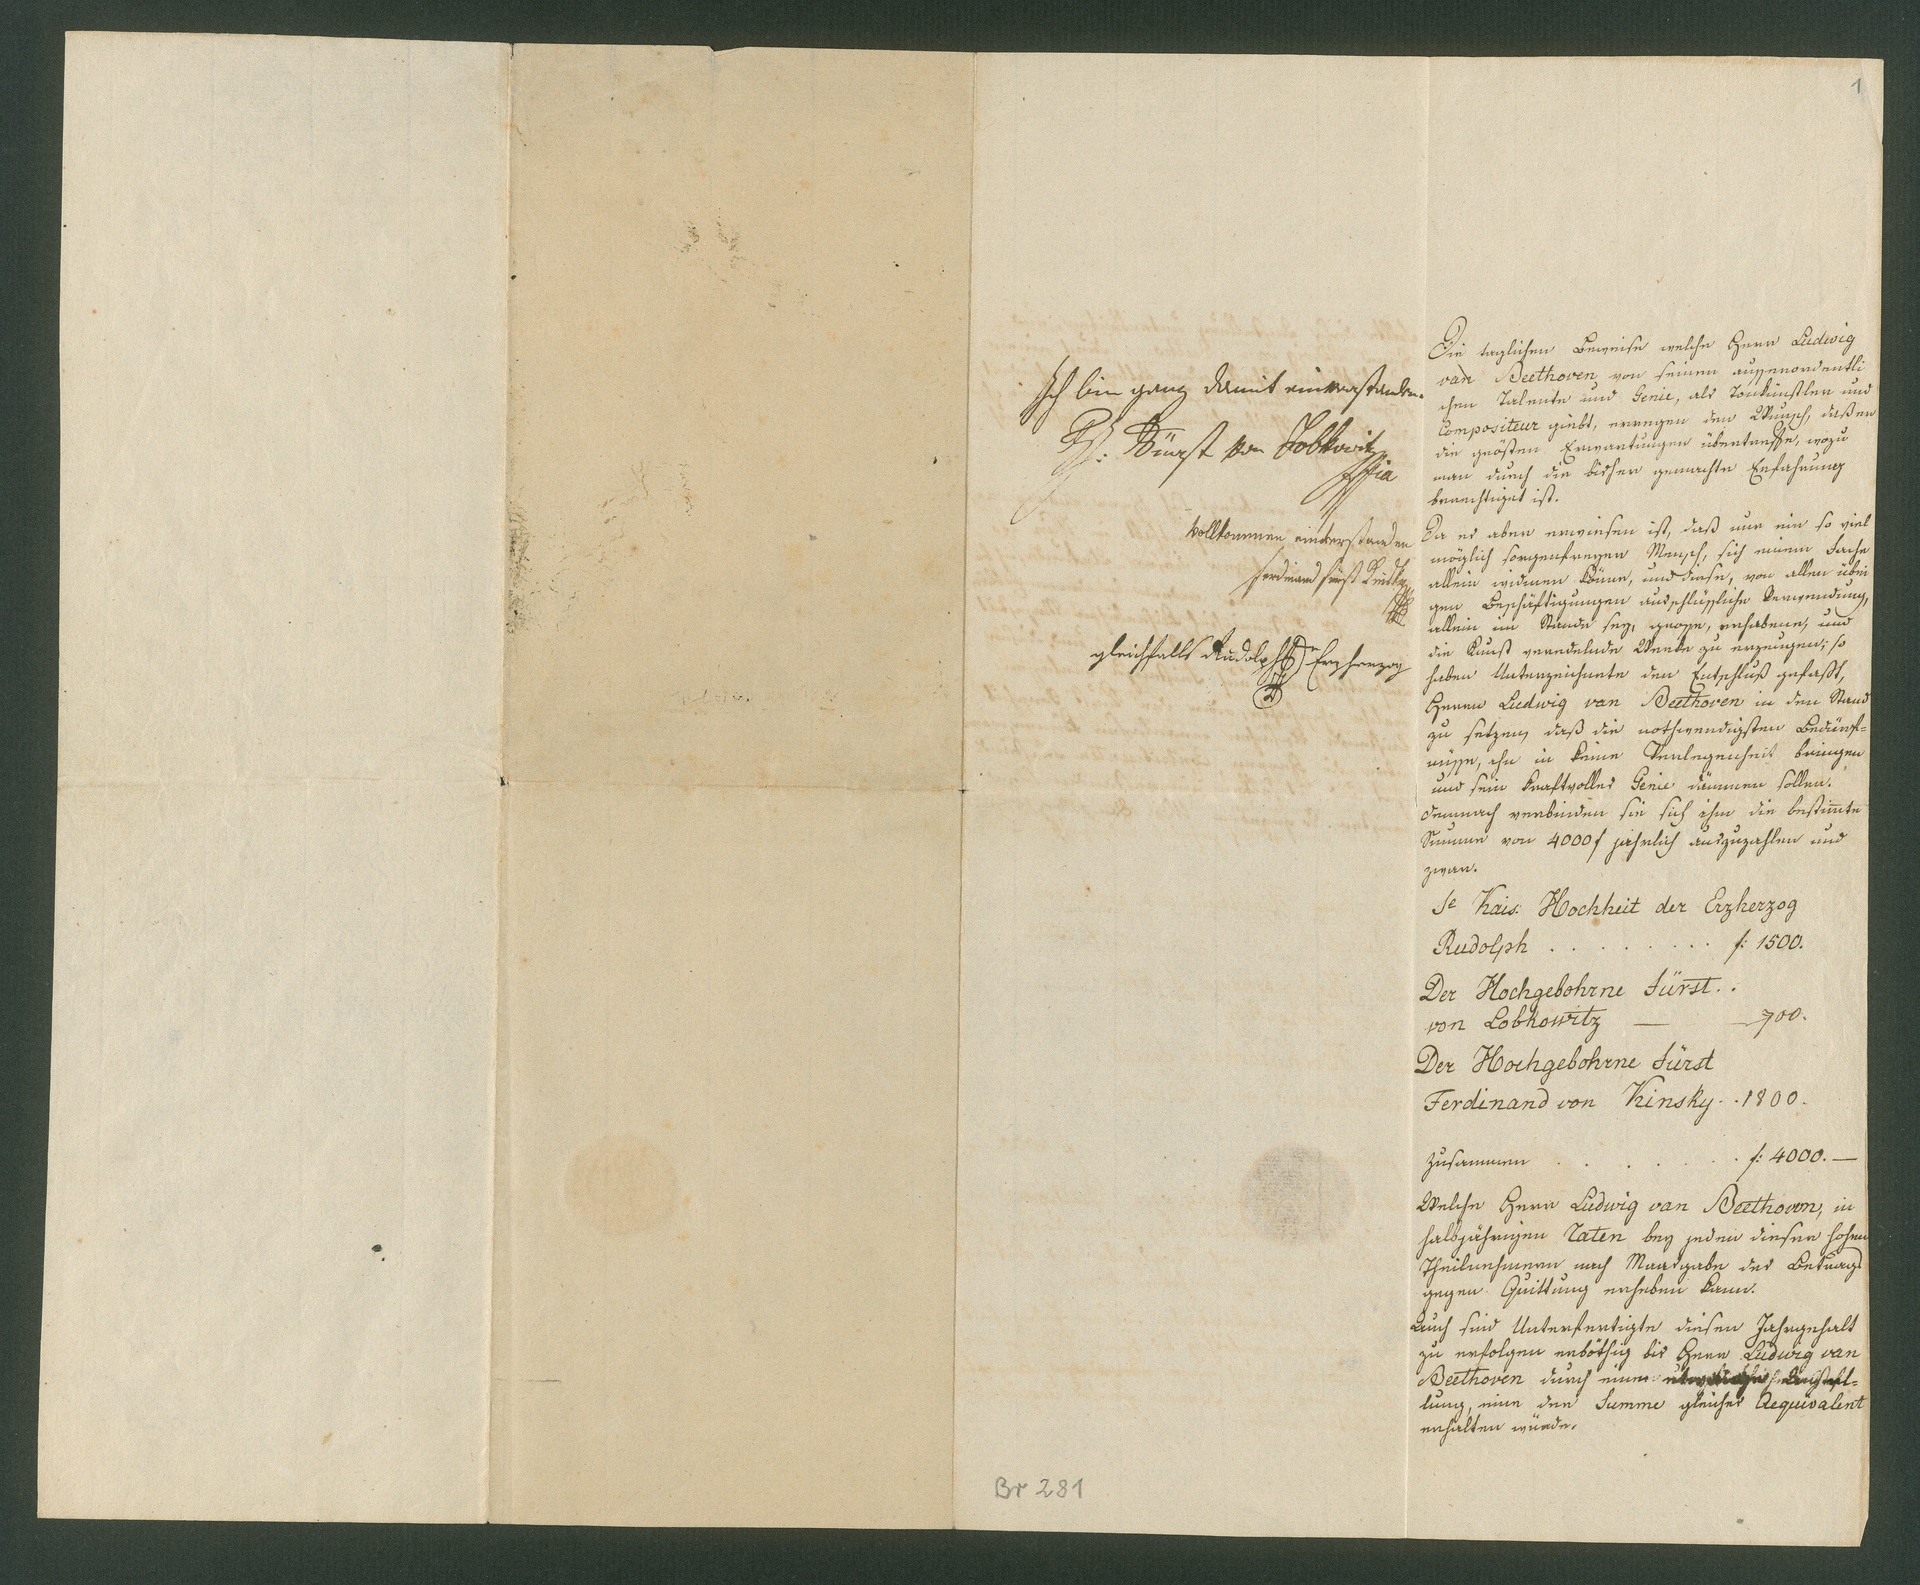 1
Die täglichen Beweise welche Herr Ludwig
van Beethoven von seinen aussenordentli
chen Talente und Genie, als Tonkünstler und
Compositeur giebt, erregen den Wunsch, daß er
die größten Erwartungen übertreffe, wozu
man durch die bisher gemachte Erfahrung
berechtiget ist.
Da es aber erwiesen ist, daß nur ein so viel
möglich sorgenfreyer Mensch, sich einem Fache
allein widmen könne, und diese, von allen übri
gen Beschäftigungen ausschlüssliche Verwendung,
allein im Stande sey, grosse, erhabene, und
die Kunst veredelnde Werke zu erzeugen; so
haben Unterzeichnete den Entschluß gefaßt,
Herrn Ludwig van Beethoven in den Stand
zu setzen, daß die nothwendigsten Bedürf=
nisse, ihn in keine Verlegenheit bringen
und sein kraftvolles Genie dämmen sollen.
demnach verbinden sie sich ihm die bestimte
Summe von 4000f jährlich auszuzahlen und
zwar.
Se Kais: Hochheit der Erzherzog
Rudolph . . . . . . . . f: 1500.
Der Hochgebohrne Fürst . .
von Lobkowitz — — 700.
Der Hochgebohrne Fürst
Ferdinand von Kinsky . . 1800.
zusammen . . . . . . f: 4000. —
Welche Herr Ludwig van Beethoven, in
halbjährigen Raten bey jeden dieser hohen
Theilnehmern nach Maasgabe des Betrags
gegen Quittung erheben kann.
Auch sind Unterfertigte diesen Jahrgehalt
zu erfolgen erböthig bis Herr Ludwig van
Beethoven durch eine
lung, eine der Summe gleiches Aequivalent
erhalten würde.
Ich bin ganz damit einverstanden.
Fürst von Lobkowitz
vollkommen einverstanden
Ferdinand Fürst Kinsky
gleichfalls Rudolph Erzherzog
Br 281